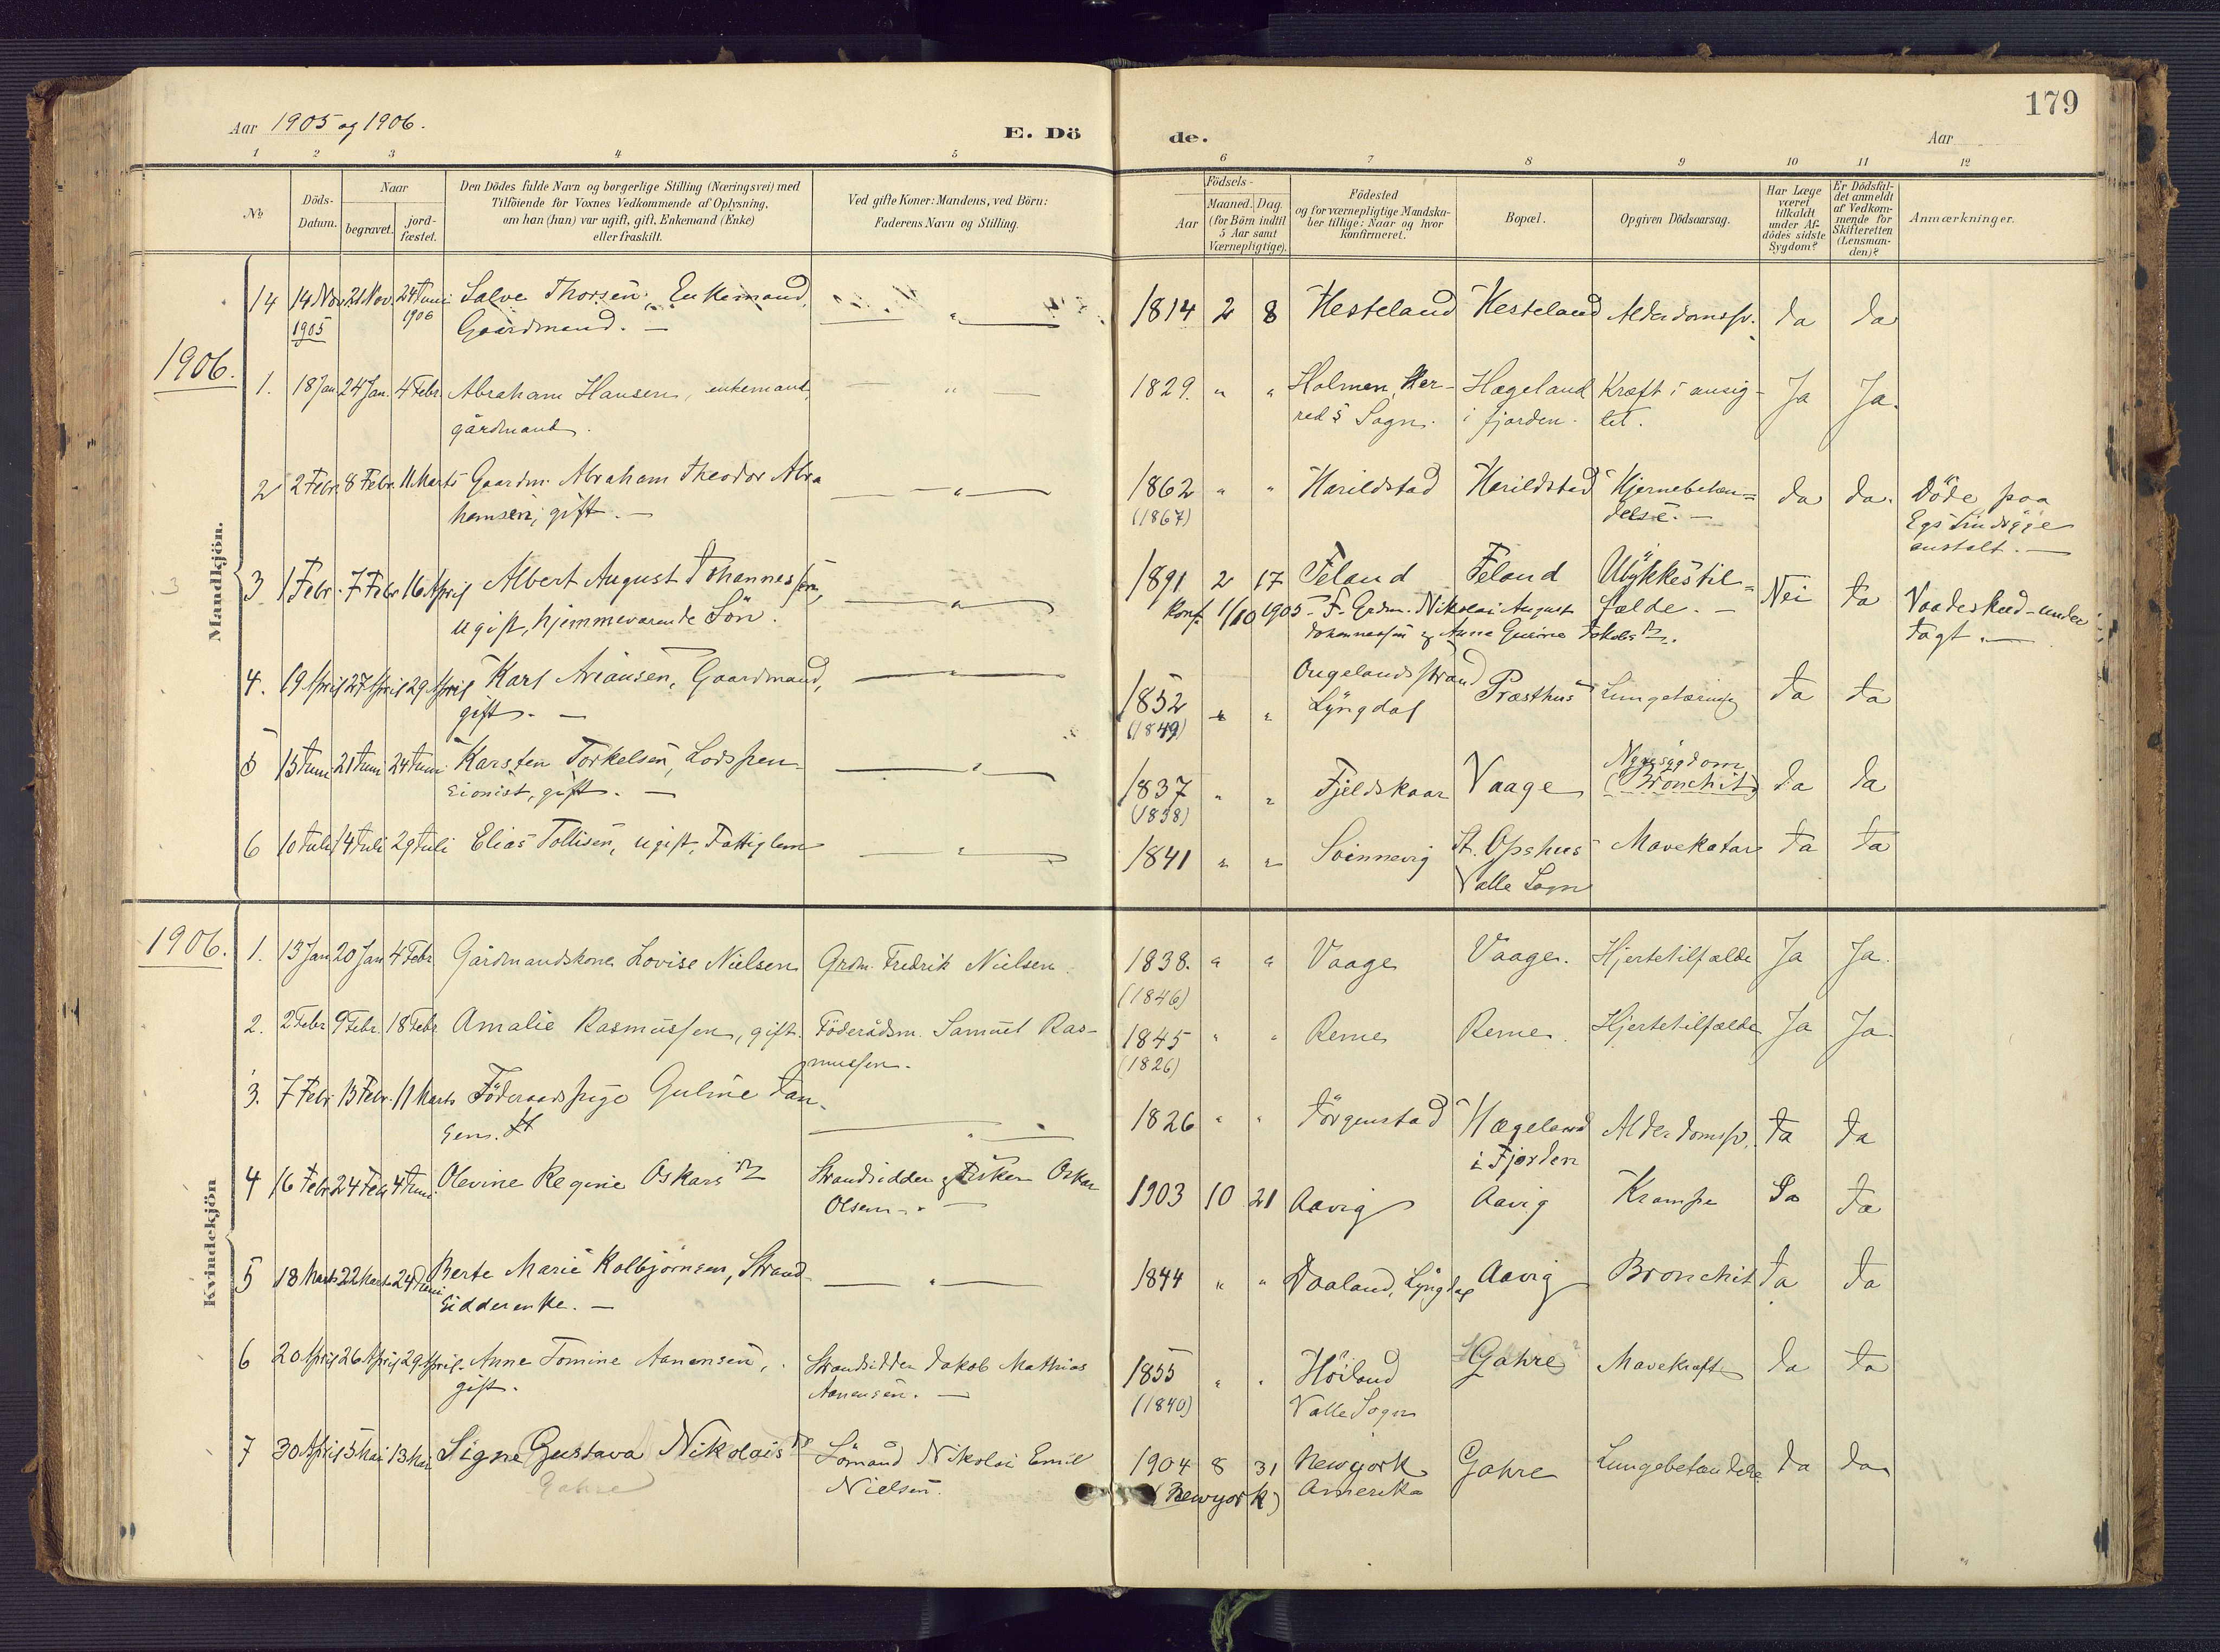 179
Aar 1905 og 1906.
E. Dö de.
Aar
1 2 3 4 5 6 7 8 9 10 11 12
No
Döds-Datum.
Naar
begravet.
jord-fæstet.
Den Dödes fulde Navn og borgerlige Stilling (Næringsvei) med
Tilföiende for Voxnes Vedkommende af Oplysning,
om han (hun) var ugift, gift, Enkemand (Enke)
eller fraskilt.
Ved gifte Koner: Mandens, ved Börn:
Faderens Navn og Stilling.
Födsels-
Aar
Maaned. Dag.
(for Börn indtil
5 Aar samt
Værnepligtige).
Födested
og for værnepligtige Mandska-
ber tillige: Naar og hvor
konfirmeret.
Bopæl.
Opgiven Dödsaarsag.
Har Læge
været
tilkaldt
under Af-
dödes sidste
Sygdom?
Er Dödsfal-
det anmeldt
af Vedkom-
mende for
Skifteretten
(Lensman-
den)?
Anmærkninger.
Mandkjön.
14 14 Nov 21 Nov. 24 Juni Salve Thorsen, Enkemand, " 1814 2 8 Hesteland Hesteland Alderdomssv. Ja Ja
1905 1906 Gaardmand. —
1906.
1. 18 Jan 24 Jan. 4 Febr. Abraham Hansen, enkemand, — " — 1829. " " Holmen, Her- Hægeland Kræft i ansig- Ja Ja.
gårdmand. reds Sogn. i fjorden. tet.
2 2 Febr. 8 Febr. 11 Marts Gaardm. Abraham Theodor Abra — " — 1862 " " Harildstad Harildstad Hjernebetæn- Ja Ja. Döde paa
hamsen, gift. — (1867) delse. — Egs Sindsyge
anstalt. —
3 1 Febr. 7 Febr 16 April Albert August Johannessen, — " — 1891 2 17 Feland Feland Ulykkestil- Nei Ja Vaadeskud-under
ugift, hjemmeværende Sön. Konf. 1/10 1905 - F. Grdm. Nikolai August fælde. — tagt. —
Johannessen og Anne
4. 19 April 27 April 29 April Karl Ariansen, Gaardmand, — " — 1852 " " Ougelandsstrand Præsthus Lungetæring Ja Ja
gift. — (1849) Lyngdal
5 15 Juni 21 Juni 24 Juni Karsten Torkelsen, Lodspen- — " — 1837 " " Fjeldskaar Vaage Nyresygdom Ja Ja
sionist, gift. — (1838) (Bronchit)
6 10 Juli 14 Juli 29 Juli Elias Tollisen, ugift, Fattiglem — " — 1841 " " Svinnevig St. Opshus Mavekatar Ja Ja
Valle Sogn
Kvindekjön
1906. 1. 13 Jan 20 Jan 4 Febr Gårdmandskone Lovise Nielsen Grdm. Fredrik Nielsen. 1838. " " Vaage Vaage. Hjertetilfælde Ja Ja.
(1846)
2. 2 Febr 9 Febr. 18 Febr. Amalie Rasmussen, gift. Föderådsm. Samuel Ras- 1845 " " Reme Reme. Hjertetilfælde Ja Ja
mussen. (1826)
3. 7 Febr 13 Febr. 11 Marts Föderaadspige Guline Jan — " — 1826 " " Jörgenstad Hægeland Alderdomssv. Ja Ja
i Fjorden
4 16 Febr 24 Feb 4 Juni Olevine Regine Oskars Strandsidder og Fisker Oskar 1903 10 21 Aavig Aavig Krampe Ja Ja
Olsen. —
5 18 Marts 22 Marts 24 Juni Berte Marie Kolbjørnsen, Strand- — " — 1844 " " Vaaland, Lyngdal Aavig Bronchit Ja Ja
sidderenke. —
6 20 April 26 April 29 April. Anne Tomine Aanensen, Strandsidder Jakob Mathias 1855 " " Höiland Gahre Mavekræft Ja Ja
gift. Aanensen. — (1840) Valle Sogn
7 30 April 5 Mai 13 Mai Signe Gustava Nikolais Sömand Nikolai Emil 1904 8 31 Newyork Gahre Lungebetændelse Ja Ja
Gahre Nielsen. (Newyork) Amerika